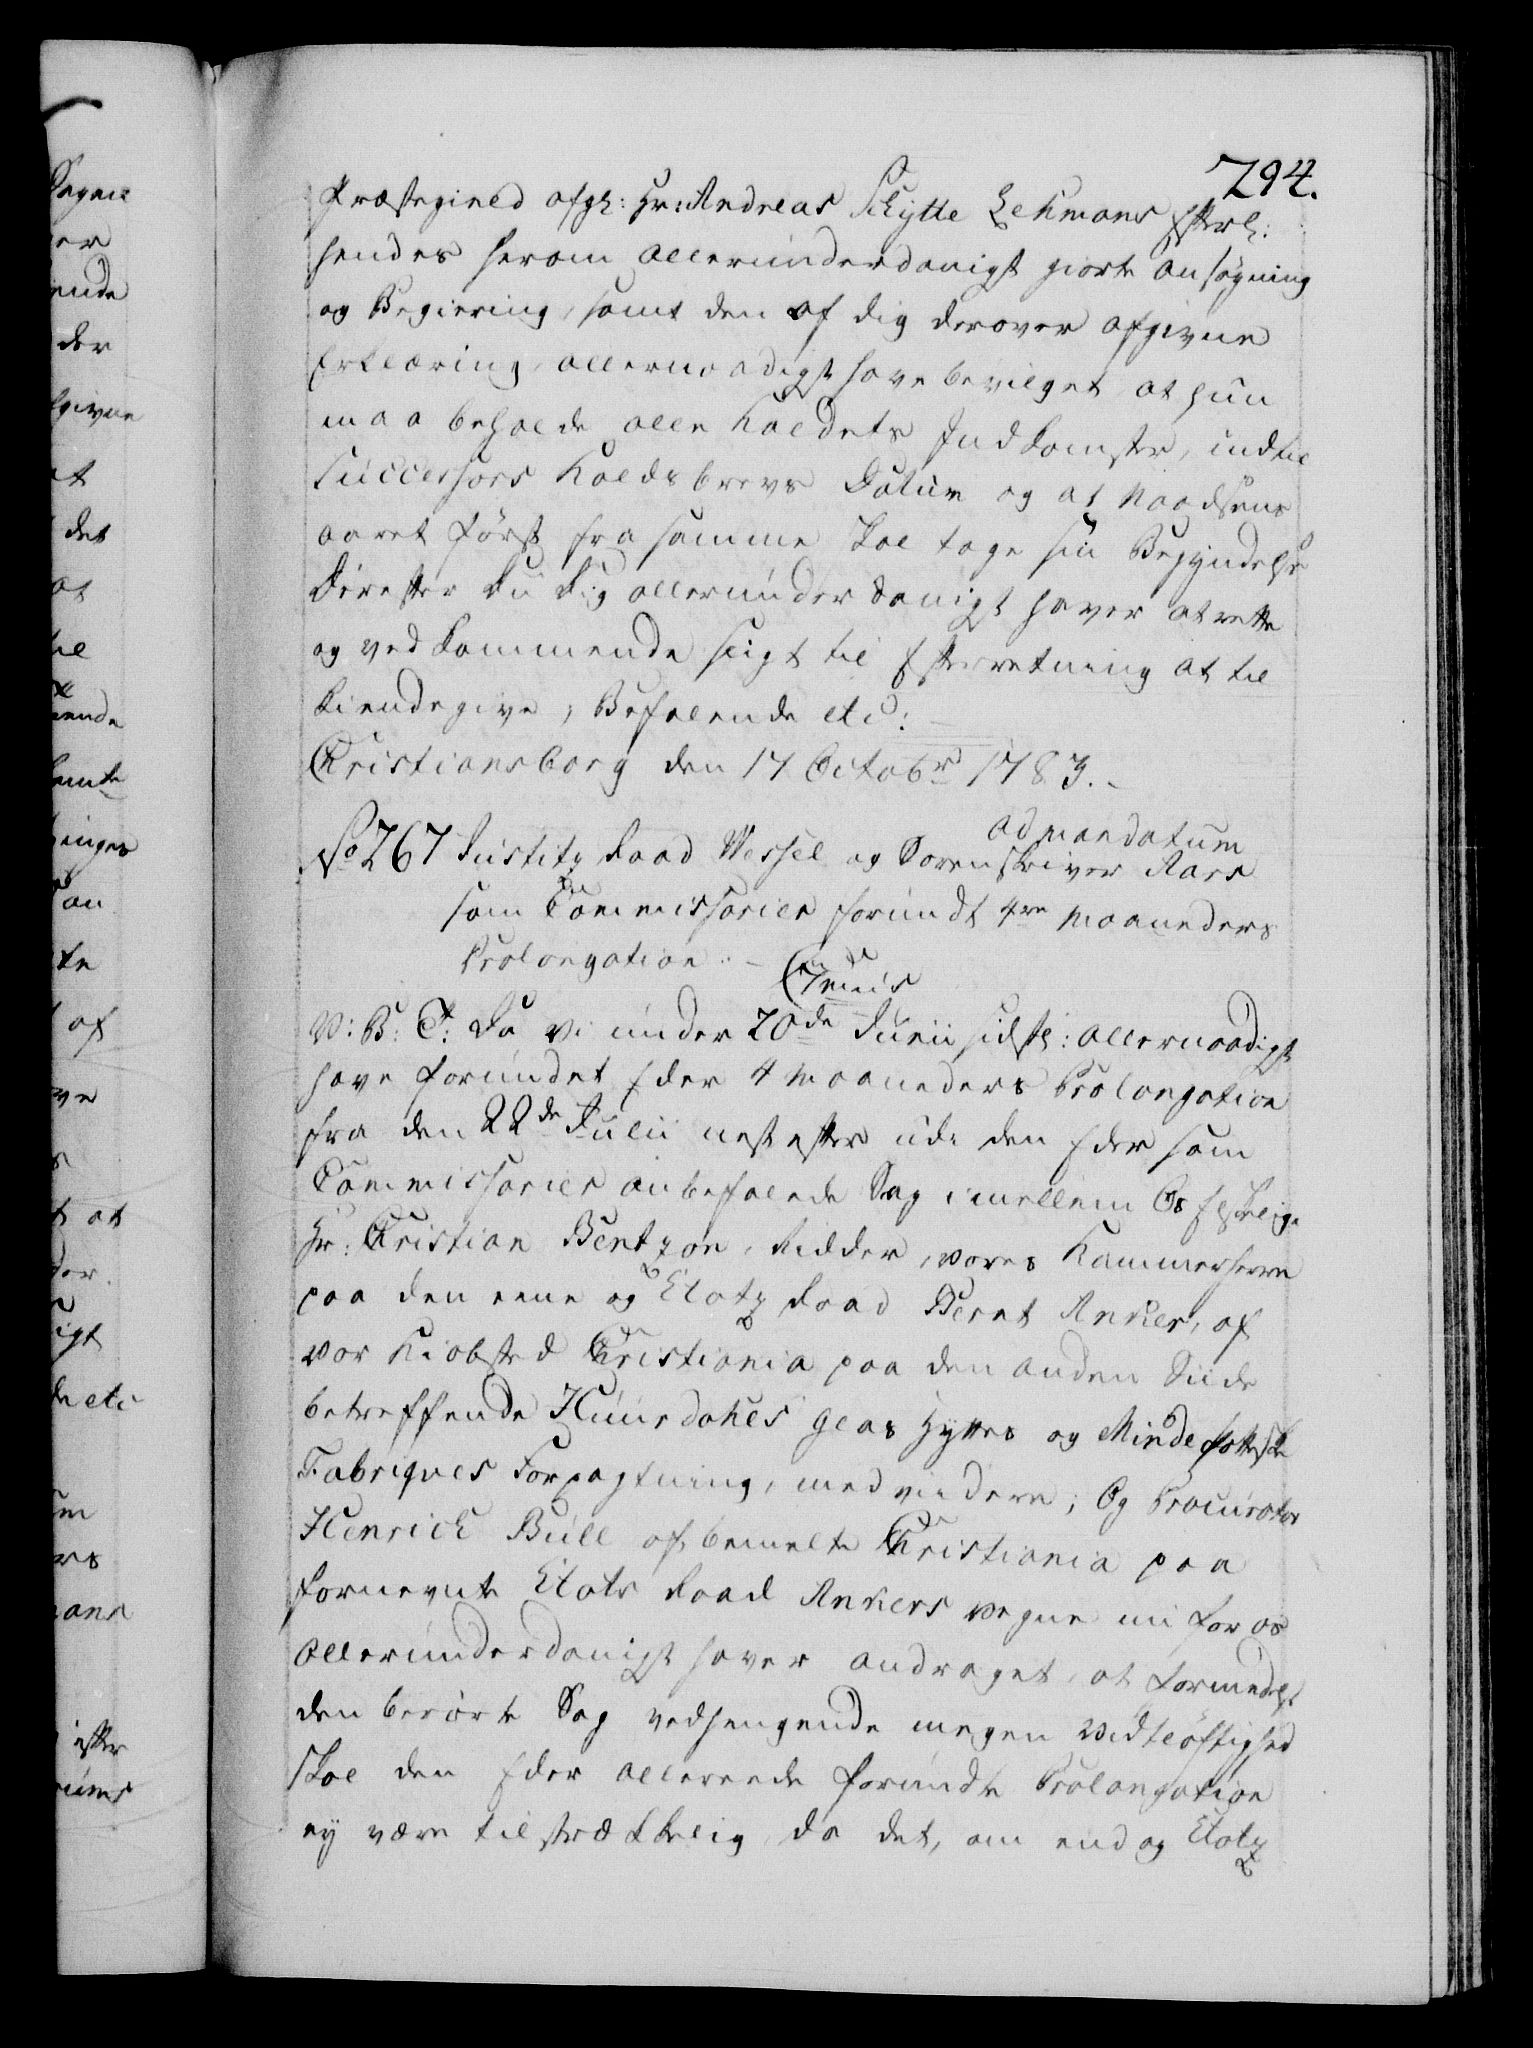 294.
Præstegield afg: Hr: Andreas Schytte Lekmans Efterl:
hendes herom allerunderdanigst giorte Ansøgning
og Begiering, samt den af dig derover afgivne
Erklæring, allernaadigst have bevilget, at hun
maa beholde alle Kaldets Indkomster, indtil
Successors Kaldsbrevs Datum og at Naadsens
aaret først fra samme skal tage sin Begyndelse
Derefter du dig allerunderdanigst haver at rette
og vedkommende sligt til Efterretning at til
kiendegive, Befalende etc:
Christiansborg den 17 Octobr 1783.
ad mandatum
No 267 Justitz Raad Wessel og Sorenskriver Aars
som Commissarier forundt 4re Maaneders
Prolongation. –
Genuis
V: B: T: Da vi under 20de Junii sidstl: allernaadigst
have forundet Eder 4 Maaneders Prolongation
fra den 22de Julii nest efter udi den Eder som
Commissarier anbefalede Sag imellem Os Elskelige
Hr: Christian Bentzon, Ridder, vores Kammerherre
paa den eene og Etatz Raad Bernt Anker, af
vor Kiøbsted Christiania paa den anden Siide
betreffende Huurdahls Glas Hyttes og
Fabriques Forpagtning, med viidere; Og Procurator
Henrich Bull af bemelte Christiania paa
fornevnte Etats Raad Ankers vegne nu for os
allerunderdanigst haver andraget, at formedelst
den berørte Sag vedhengende megen Vidtløftighed
skal den Eder allereede forundte Prolongation
ey være tilstrækkelig, da det, om endog Etatz